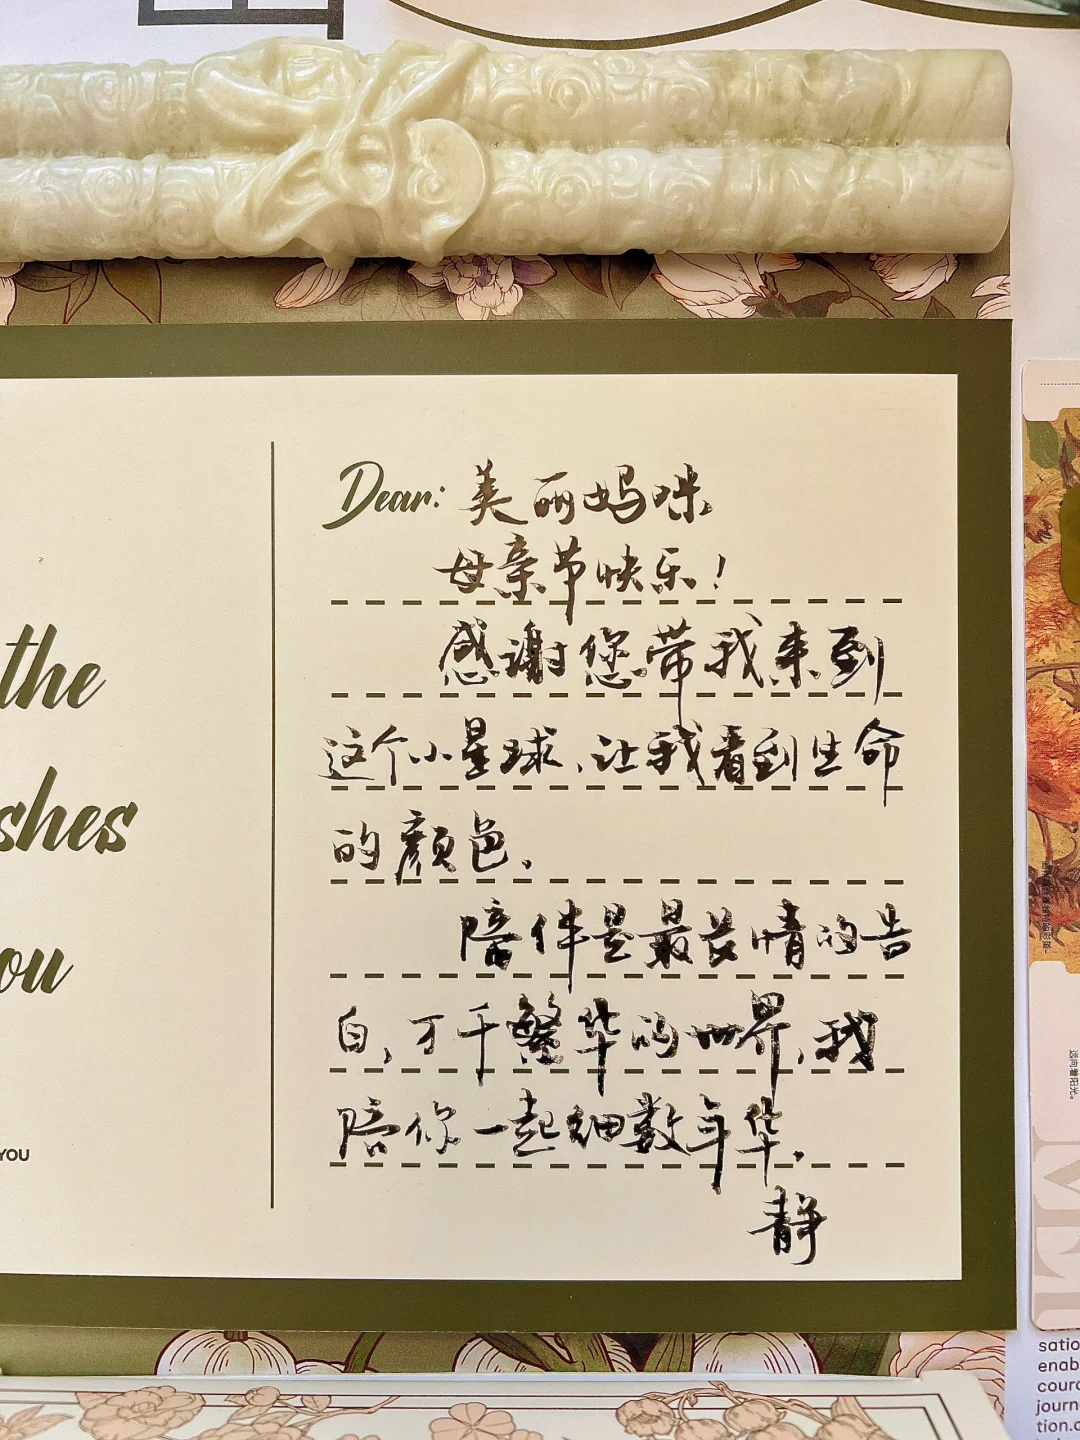 the
shes
ou
YOU
Dear: 美丽妈咪
母亲节快乐！
感谢您带我来到
这个小星球,让我看到生命
的颜色.
陪伴是最长情的告
白,万千繁华的世界,我
陪你一起细数年华.
静
送向着阳光。
ME
satio
enab
courc
journ
tion.c